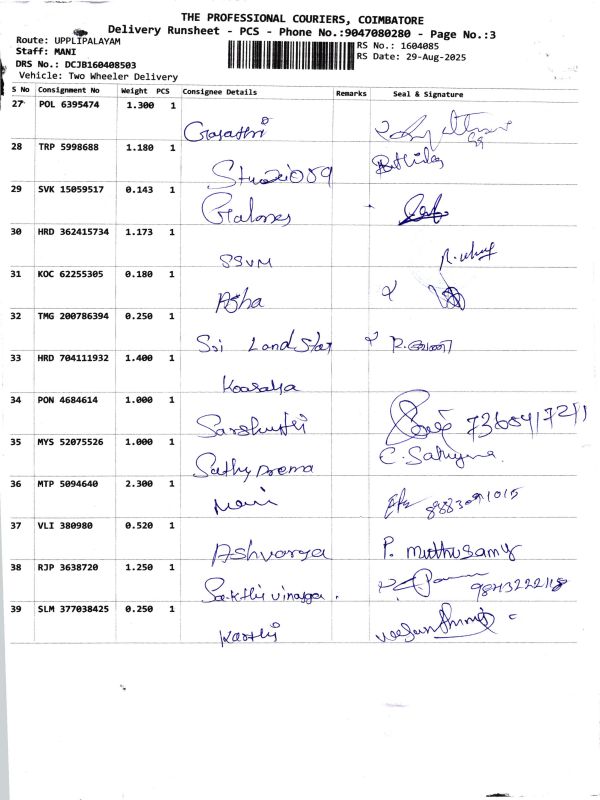 THE PROFESSIONAL COURIERS, COIMBATORE
Delivery Runsheet - PCS - Phone No.:9047080280 - Page No.:3
Route: UPPLIPALAYAM
RS No.: 1604085
Staff: MANI
RS Date: 29-Aug-2025
DRS No.: DCJB160408503
Vehicle: Two Wheeler Delivery
S No Consignment No Weight PCS Consignee Details Remarks Seal & Signature
27 POL 6395474 1.300 1
Gayathri
28 TRP 5998688 1.180 1
Studio 089
29 SVK 15059517 0.143 1
30 HRD 362415734 1.173 1
SSVM
31 KOC 62255305 0.180 1
Asha
32 TMG 200786394 0.250 1
Sri Land Star
33 HRD 704111932 1.400 1
Kousalya
34 PON 4684614 1.000 1
7360417211
35 MYS 52075526 1.000 1
Sathy Prema C. Sathyma
36 MTP 5094640 2.300 1
Mani 9883091015
37 VLI 380980 0.520 1
Ashvarya P. muthusamy
38 RJP 3638720 1.250 1
Sakthi vinayga. 9843222118
39 SLM 377038425 0.250 1
Karthi